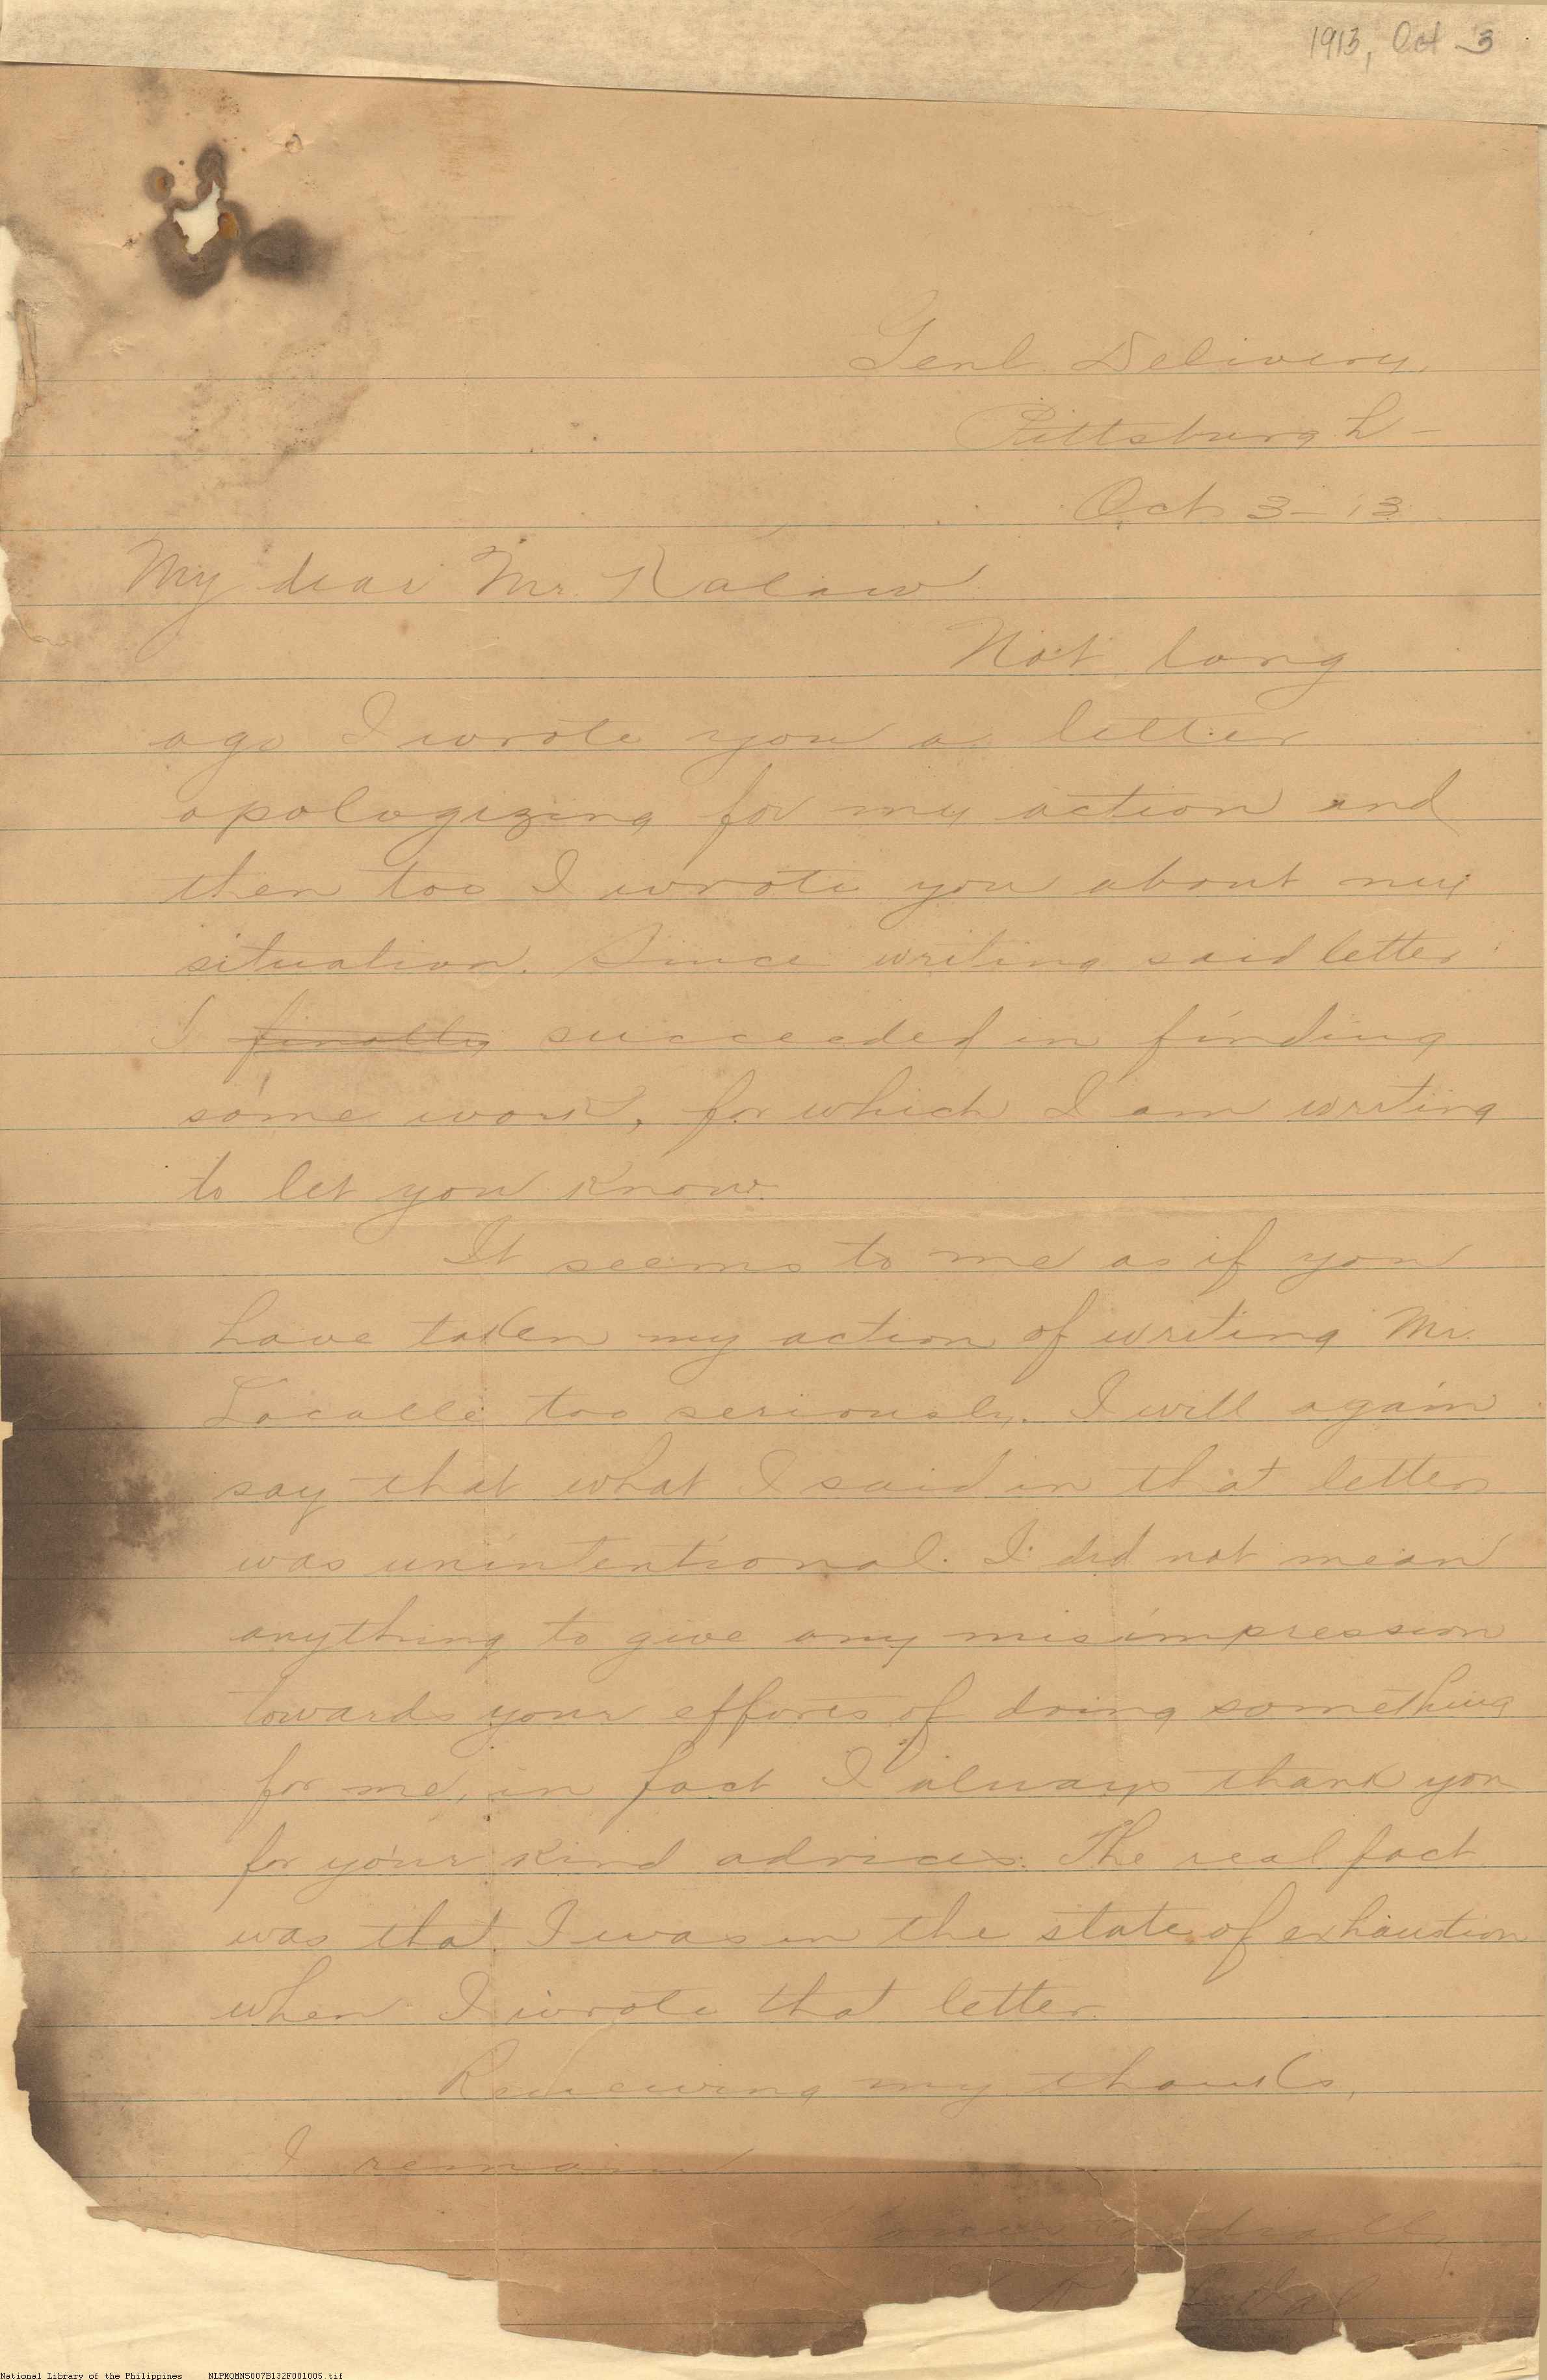 1913, Oct 3
Genl. Delivery,
Pittsburgh -
Oct 3 - 13
My dear Mr. Kalaw
Not long
ago I wrote you a letter
apologizing for my action and
then too I wrote you about my
situation. Since writing said letter
I finally succeeded in finding
some work, for which I am writing
to let you know.
It seems to me as if you
have taken my action of writing Mr.
Lacalle too seriously. I will again
say that what I said in that letter
was unintentional. I did not mean
anything to give any misimpression
towards your efforts of doing something
for me, in fact I always thank you
for your kind advices. The real fact
was that I was in the state of exhaustion
when I wrote that letter.
Renewing my thanks,
I remain
Yours cordially,
National Library of the Philippines NLPMQMNS007B132F001005.tif